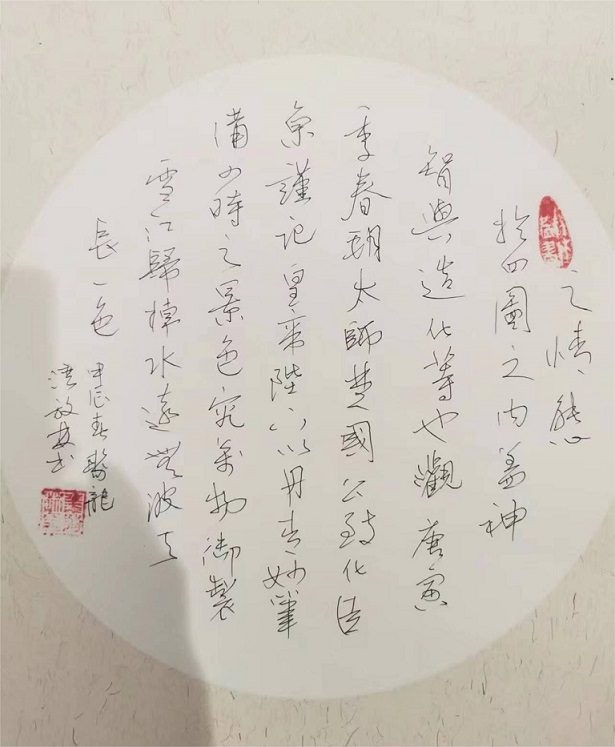 之情態
於四圖之内盖神
智與造化等也觀唐寅
季春朔太師楚國公致仕臣
京謹記皇帝陛下以丹青妙筆
備四時之景色究萬物御製
雪江歸棹水遠無波天
長一色
甲辰春龍
书